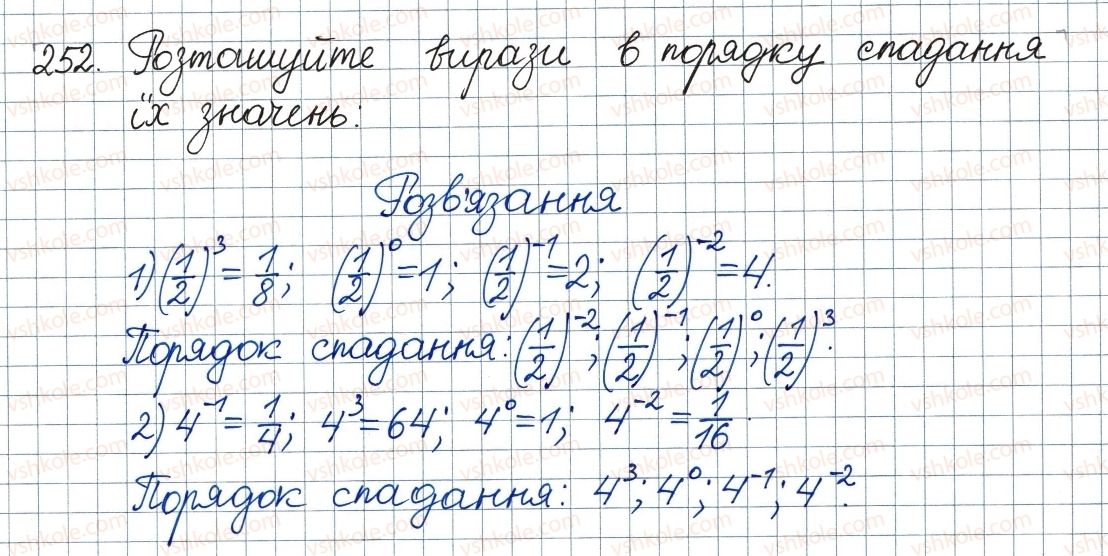 252. Розташуйте вирази в порядку спадання
їх значень:
Розв'язання
1) (1/2)³ = 1/8; (1/2)⁰ = 1; (1/2)⁻¹ = 2; (1/2)⁻² = 4.
Порядок спадання: (1/2)⁻²; (1/2)⁻¹; (1/2)⁰; (1/2)³.
2) 4⁻¹ = 1/4; 4³ = 64; 4⁰ = 1; 4⁻² = 1/16.
Порядок спадання: 4³; 4⁰; 4⁻¹; 4⁻².